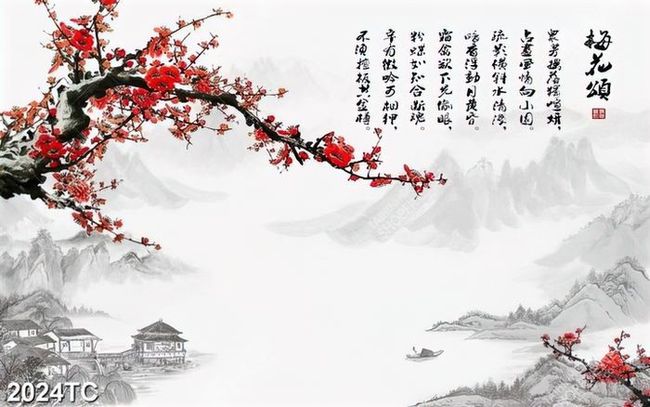 梅花頌
眾芳搖落獨暄妍，
占盡風情向小園。
疏影橫斜水清淺，
暗香浮動月黃昏。
霜禽欲下先偷眼，
粉蝶如知合斷魂。
幸有微吟可相狎，
不須檀板共金樽。
2024TC